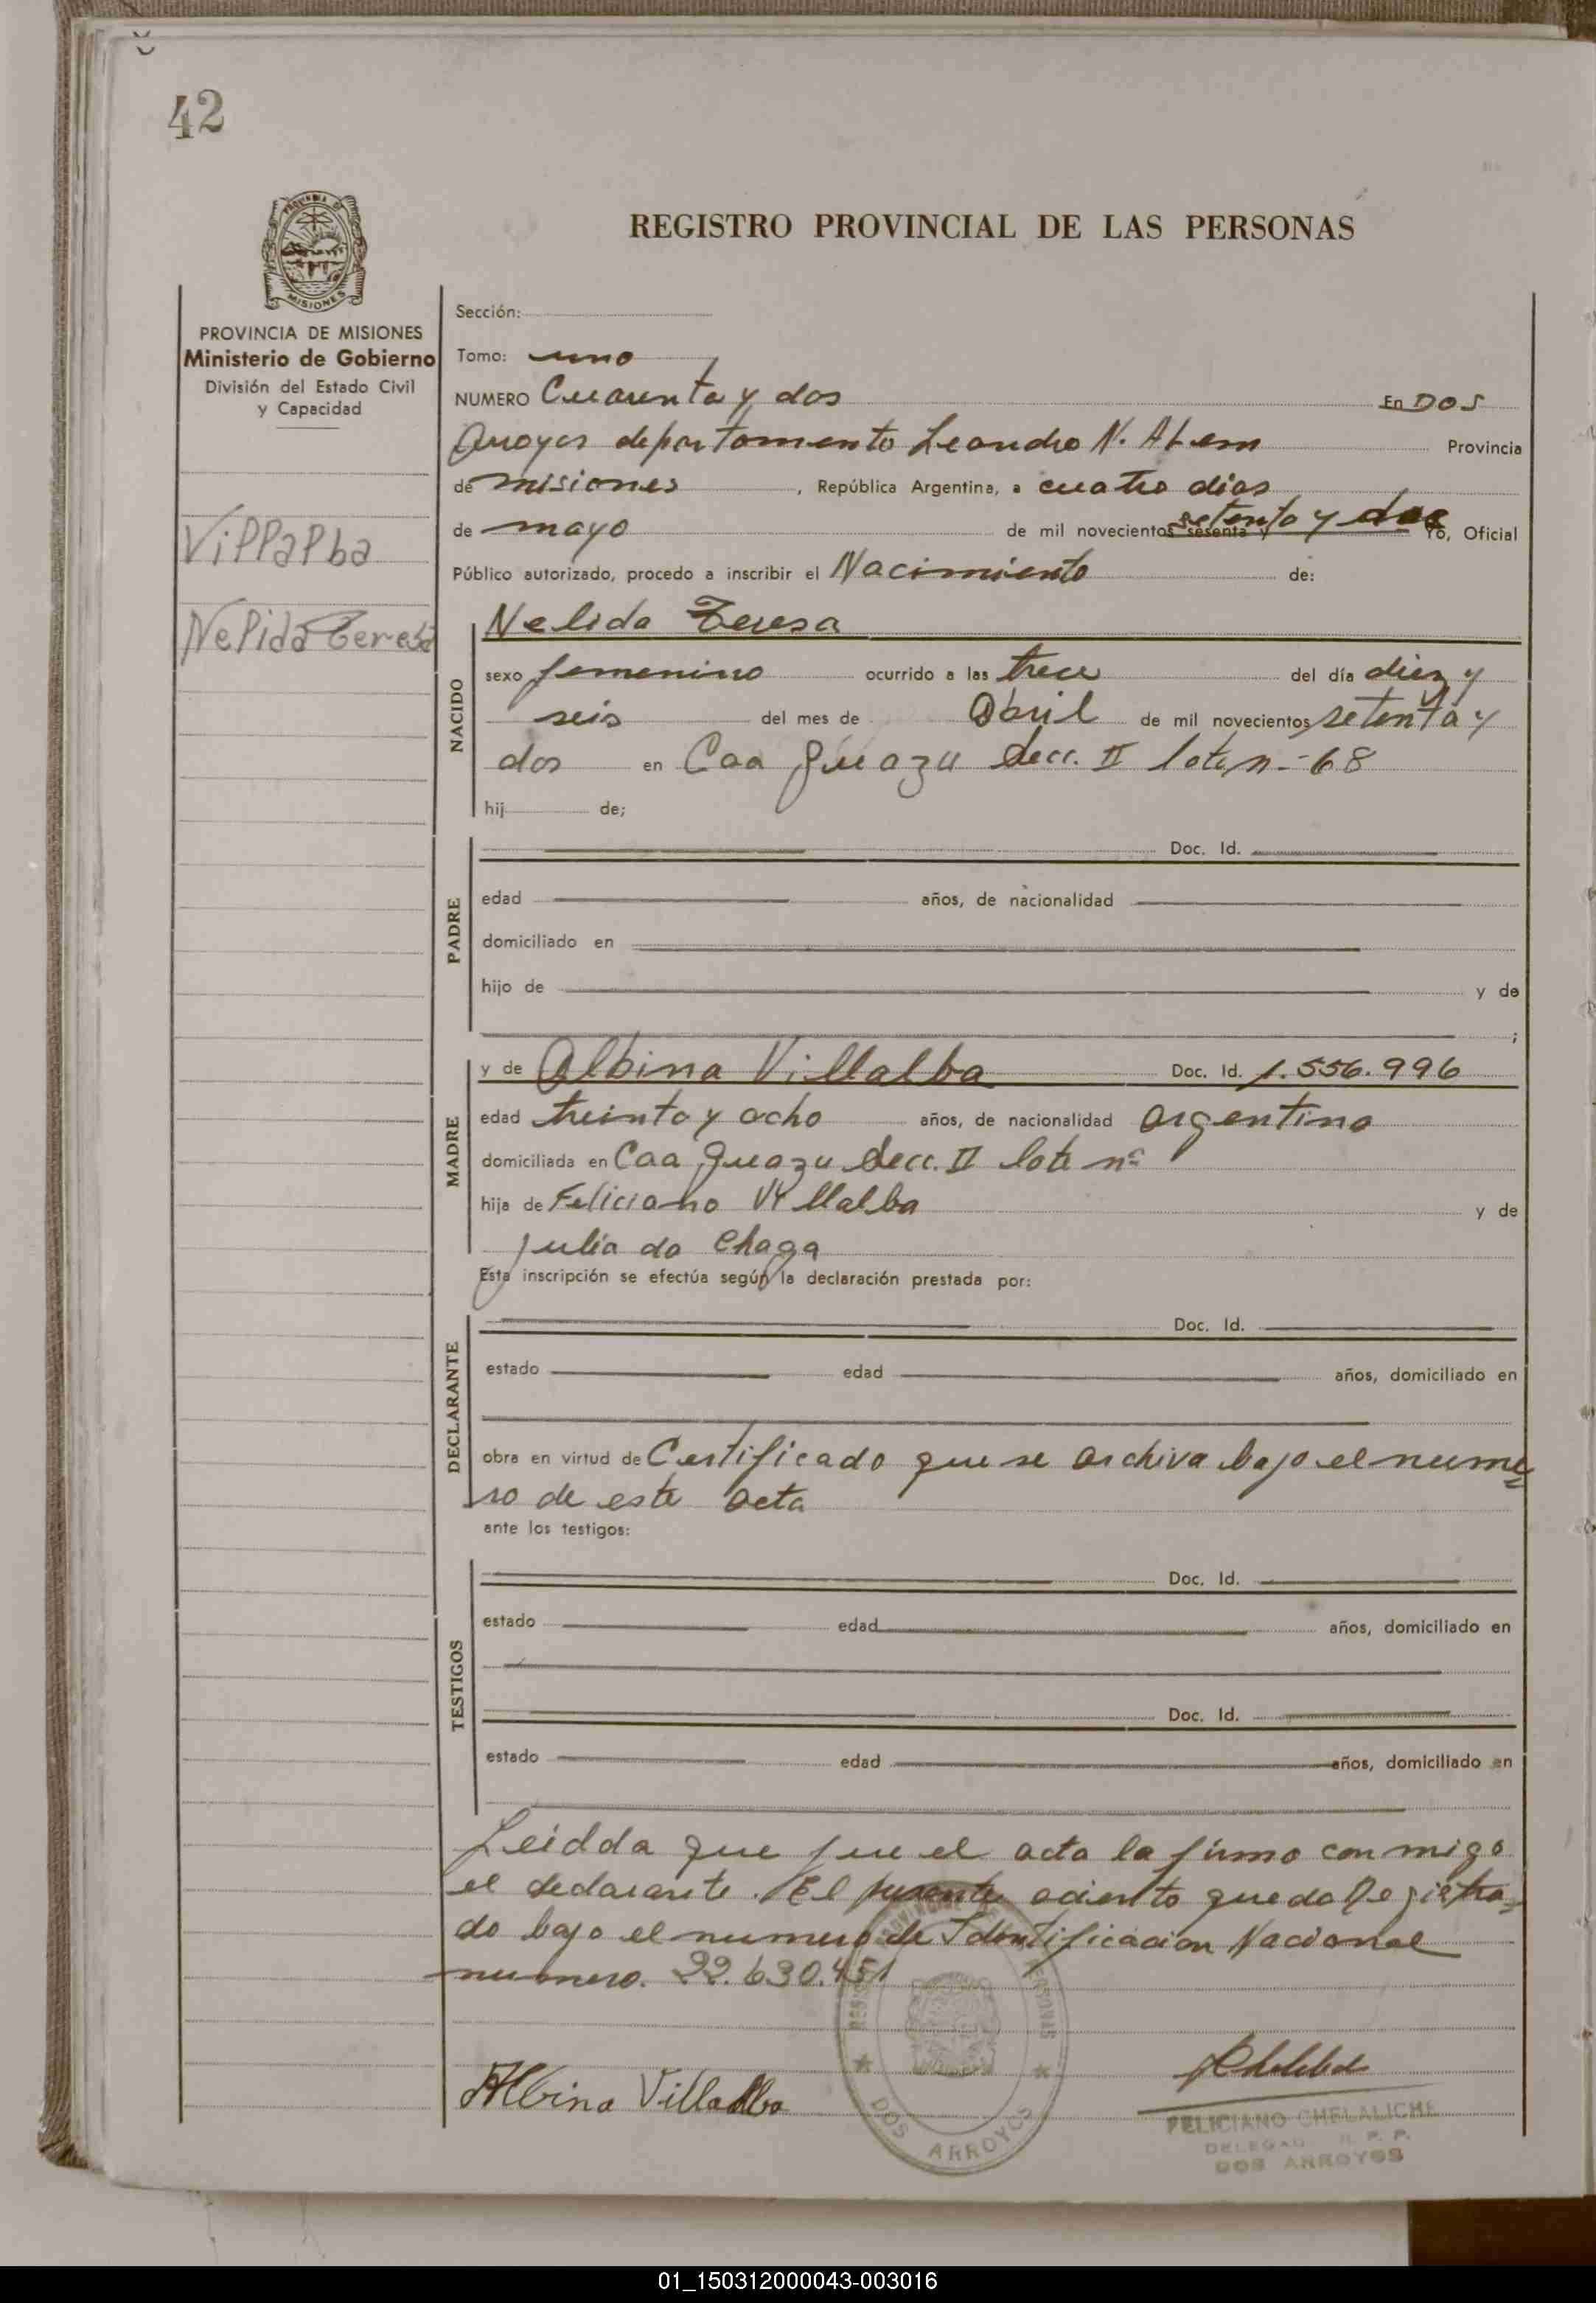 42
REGISTRO PROVINCIAL DE LAS PERSONAS
MISIONES
PROVINCIA DE MISIONES
Ministerio de Gobierno
División del Estado Civil
y Capacidad
Villalba
Nelida Teresa
Sección:
Tomo: uno
NUMERO Cuarenta y dos En DOS
Arroyos departamento Leandro N. Alem Provincia
de misiones, República Argentina, a cuatro dias
de mayo de mil novecientos sesenta y setenta y dos Yo, Oficial
Público autorizado, procedo a inscribir el Nacimiento de:
NACIDO
Nelida Teresa
sexo femenino ocurrido a las trece del día diez y
seis del mes de Abril de mil novecientos setenta y
dos en Caa Guazu Secc. II lote n- 68
hij de;
PADRE
Doc. Id.
edad años, de nacionalidad
domiciliado en
hijo de y de
;
MADRE
y de Albina Villalba Doc. Id. 1.556.996
edad treinta y ocho años, de nacionalidad argentina
domiciliada en Caa Guazu Secc. II lote nº
hija de Feliciano Villalba y de
Julia da Chaga
Esta inscripción se efectúa según la declaración prestada por:
DECLARANTE
Doc. Id.
estado edad años, domiciliado en
obra en virtud de Certificado que se archiva bajo el nume=
ro de este acta
ante los testigos:
TESTIGOS
Doc. Id.
estado edad años, domiciliado en
Doc. Id.
estado edad años, domiciliado en
Leidda que fue el acta la firmo con migo
el declarante. El presente aciento queda Registra=
do bajo el numero de Identificacion Nacional
numero. 22.630.451
Albina Villalba
DOS ARROYOS
FELICIANO CHELALICHE
DELEGADO R. P. P.
DOS ARROYOS
01_150312000043-003016